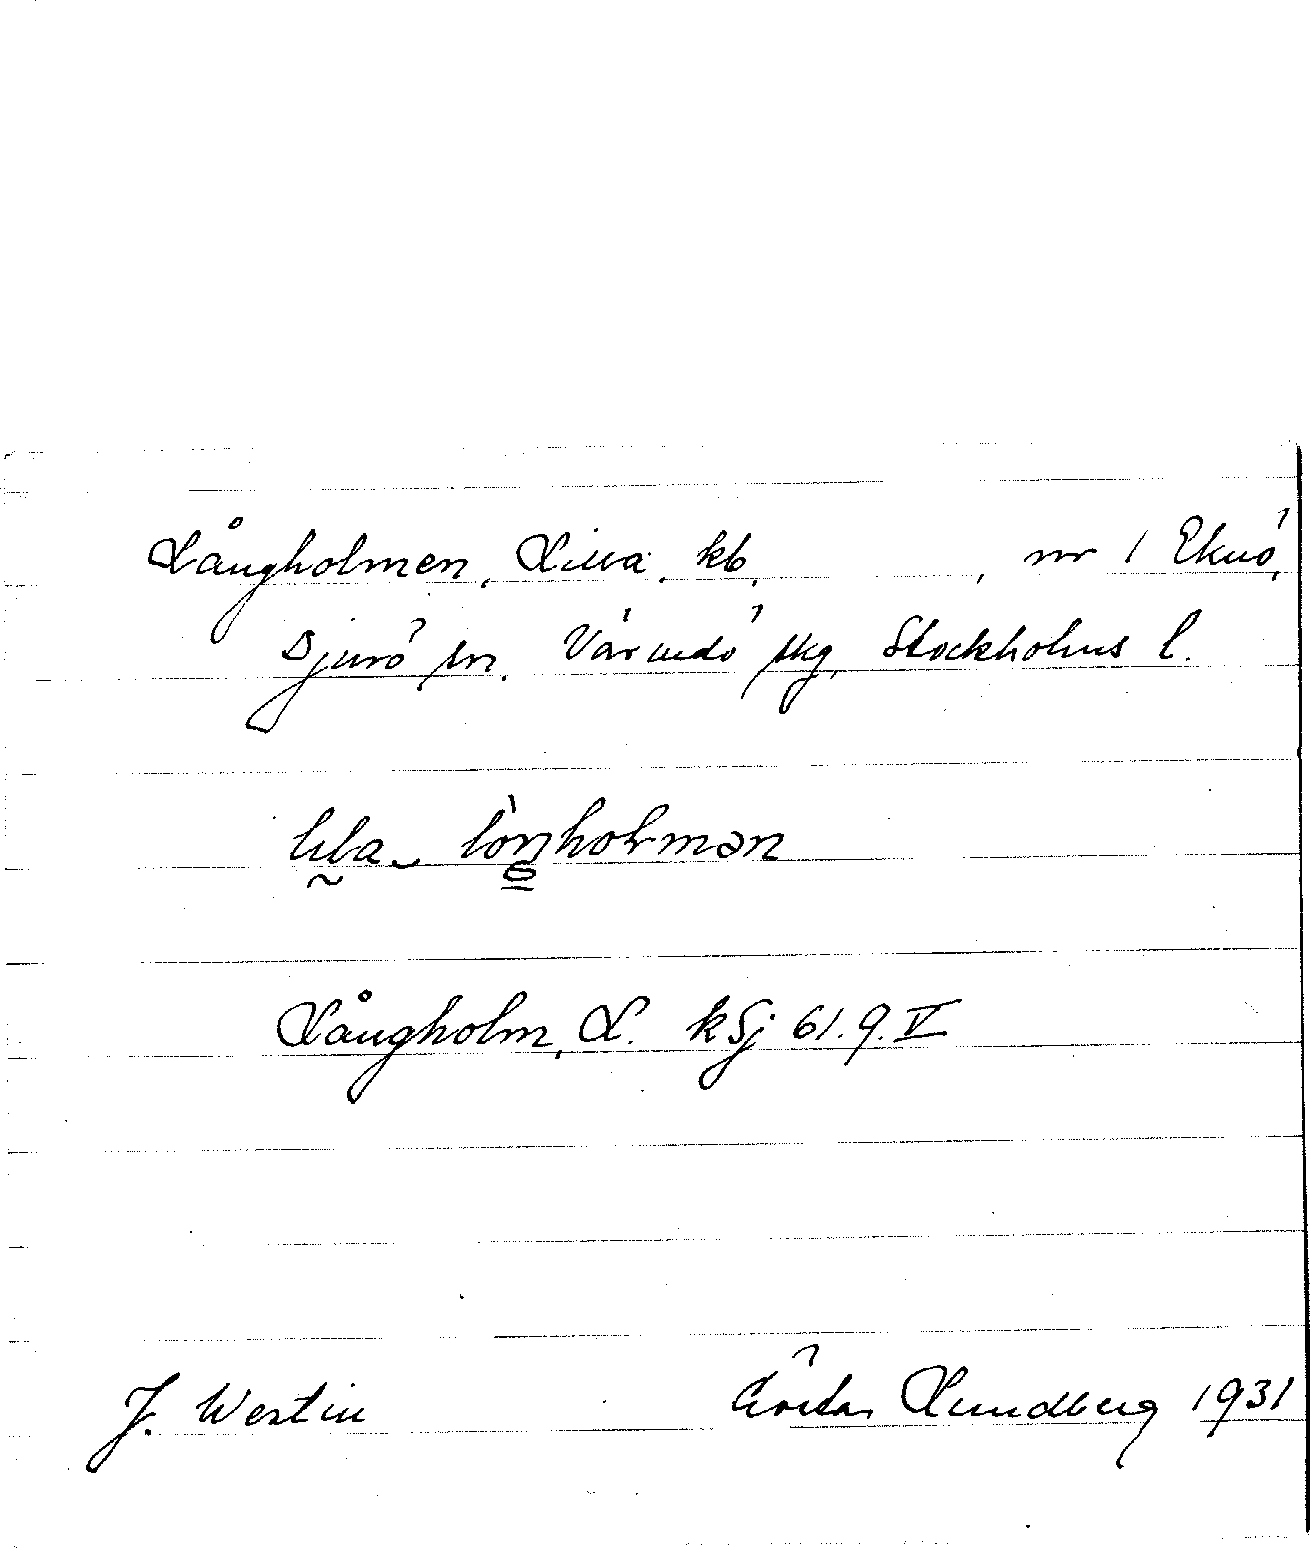 Långholmen, Lilla, kb, , nr 1 Eknö,
Djurö sn. Värmdö skg, Stockholms l.
lɩla lòŋholmən
Långholm, L. kSj 61.9.V
J. Westin Gösta Lundberg 1931